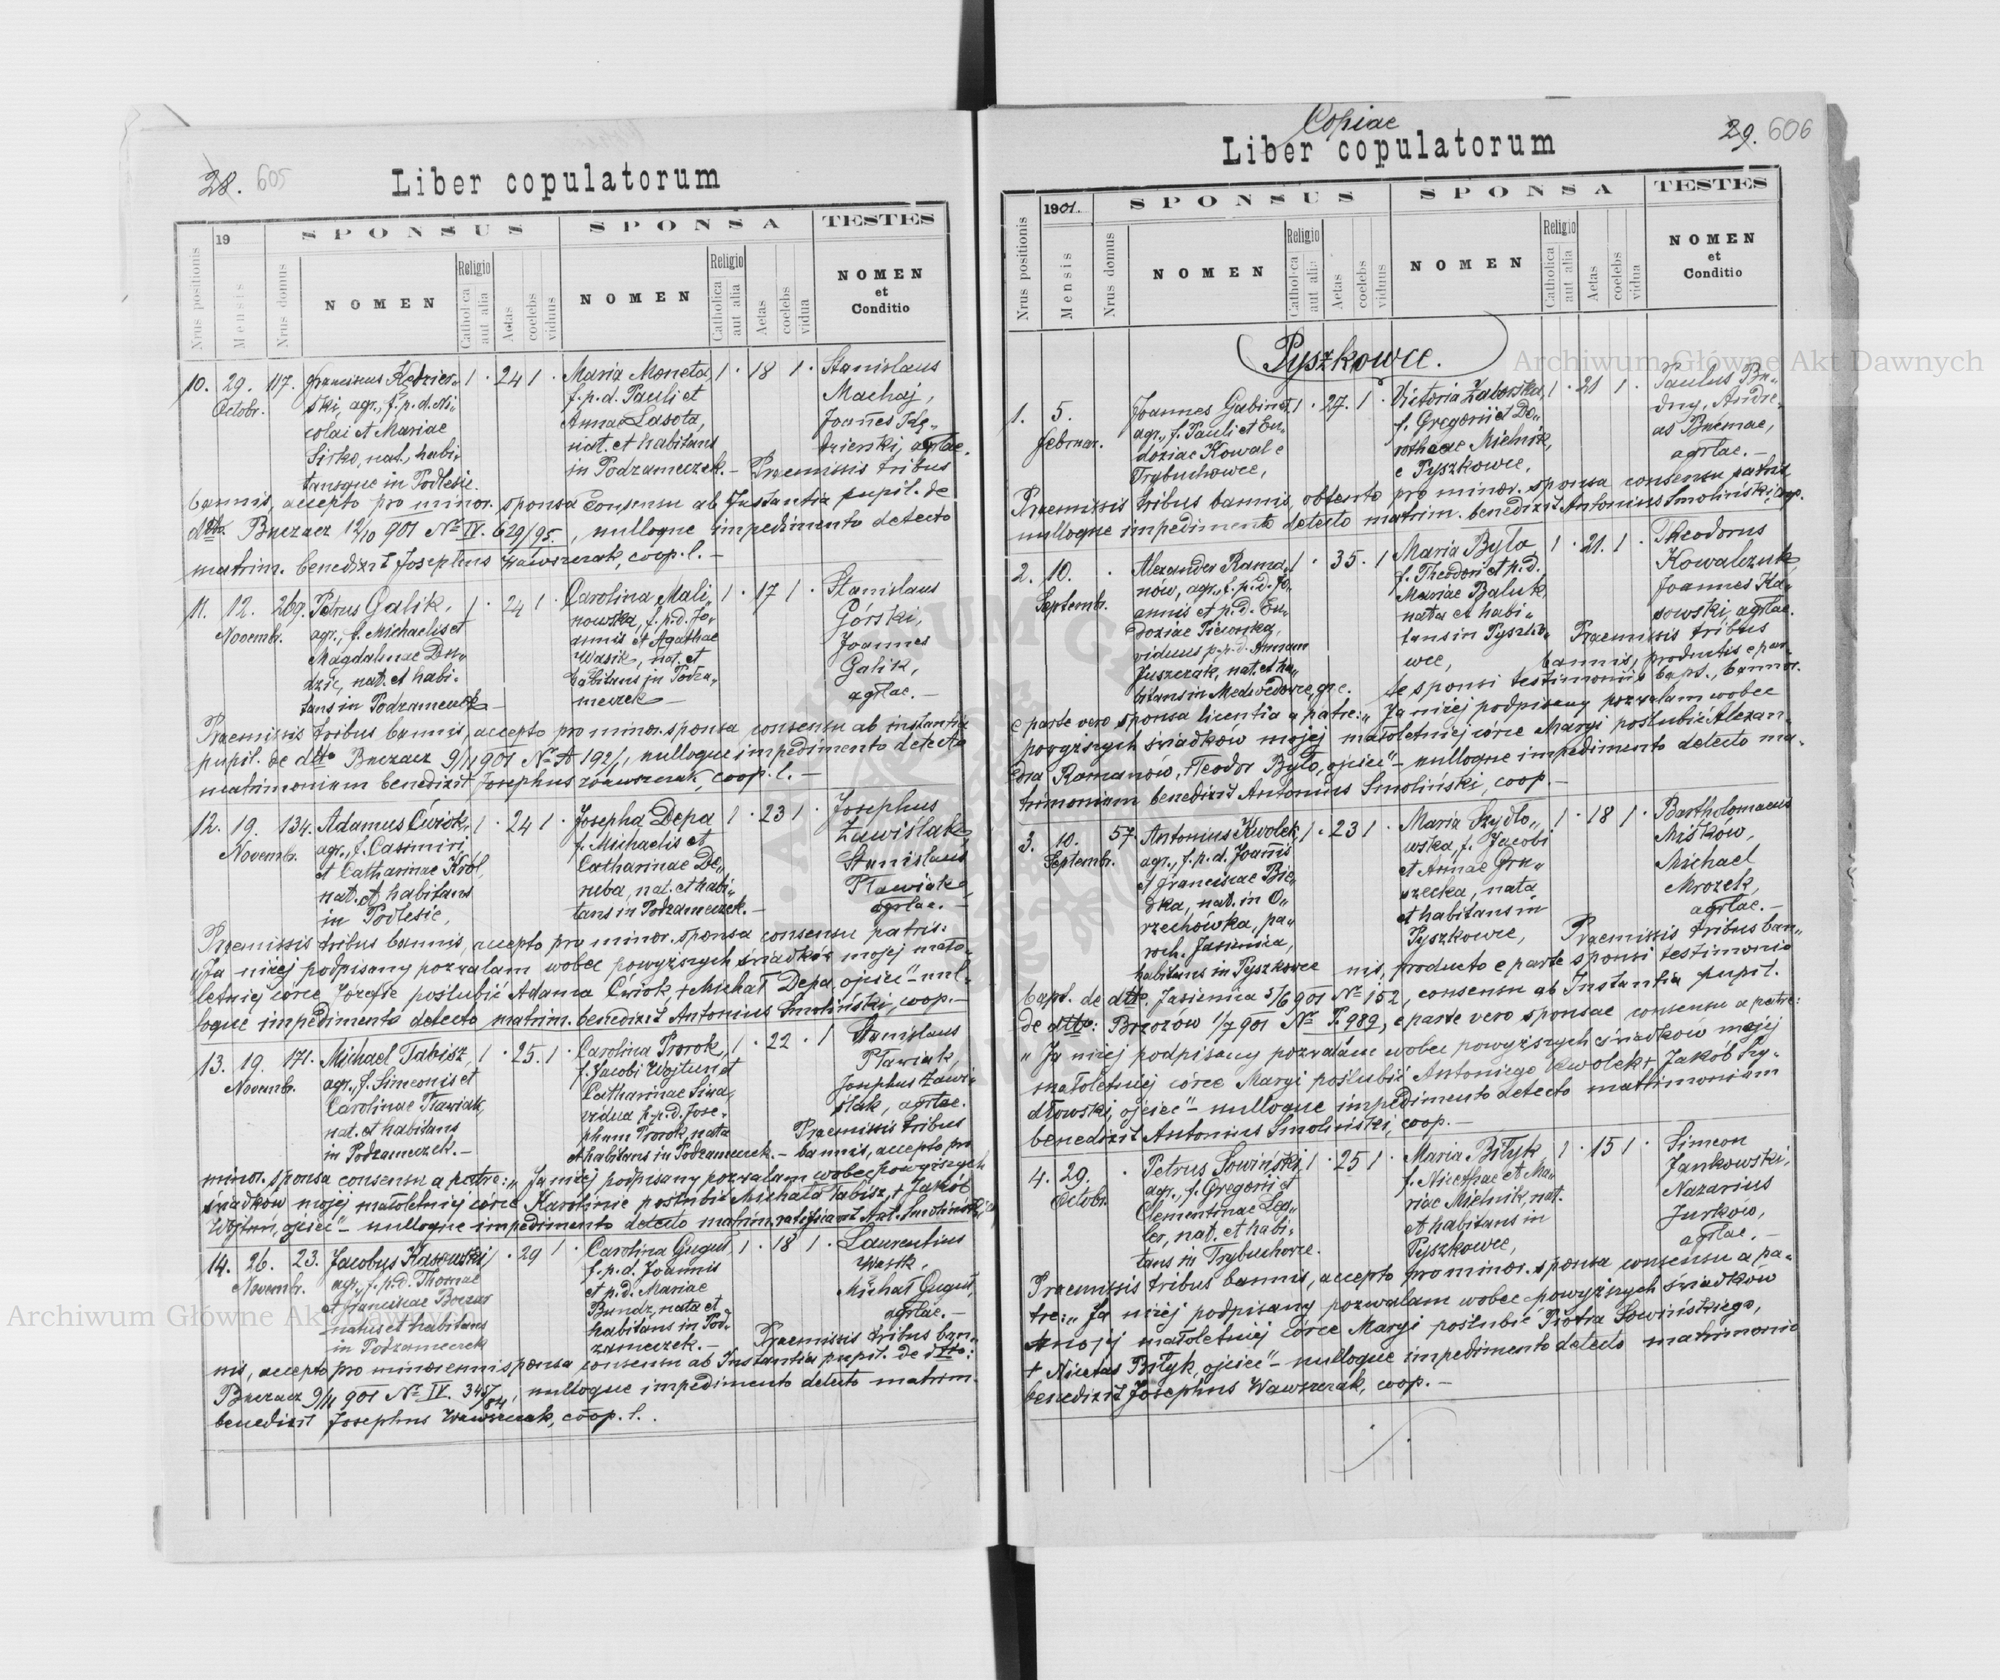 28. 605
Liber copulatorum
Nrus positionis
19
Mensis
Nrus domus
SPONSUS
SPONSA
TESTES
NOMEN
Religio
Catholica
aut alia
Aetas
coelebs
viduus
NOMEN
Religio
Catholica
aut alia
Aetas
coelebs
vidua
NOMEN
et
Conditio
10. 29. 117. Franciscus Kędzier- 1 · 24 1 · Maria Moneta, 1 · 18 1 · Stanislaus
Octobr. ski, agr., f. p. d. Ni- f. p. d. Pauli et Machaj,
colai et Mariae Anna Lasota, Joannes Kę-
Sirko, nat., habi- nat. et habitans dzierski, agrlae.
tansque in Podlesie. in Podzameczek. – Praemissis tribus
bannis, accepto pro minor. sponsa consensu ab Instantia pupil. de
dtto Buczacz 12/10 901 No IV. 629/95., nulloque impedimento detecto
matrim. benedixit Josephus Wawszczak, coop. l. –
11. 12. 269. Petrus Galik, 1 · 24 1 · Carolina Mali- 1 · 17 1 · Stanislaus
Novembr. agr., f. Michaelis et nowska, f. p. d. Jo- Górski,
Magdalenae Du- annis et Agathae Joannes
dzic, nat. et habi- Wasik, nat. et Galik,
tans in Podzameczek – habitans in Podza- agrlae. –
meczek –
Praemissis tribus bannis, accepto pro minor. sponsa consensu ab instantia
pupil. de dtto Buczacz 9/11 901 No A 192/1, nulloque impedimento detecto
matrimonium benedixit Josephus Wawszczak, coop. l. –
12. 19. 134. Adamus Ćwiok, 1 · 24 1 · Josepha Depa 1 · 23 1 · Josephus
Novembr. agr., f. Casimiri f. Michaelis et Zawiślak,
et Catharinae Król, Catharinae De- Stanislaus
nat. et habitans ruba, nat. et habi- Pławiak,
in Podlesie, tans in Podzameczek. – agrlae. –
Praemissis tribus bannis, accepto pro minor. sponsa consensu patris:
„Ja niżej podpisany pozwalam wobec powyższych świadków mojej mało-
letniej córce Józefie poślubić Adama Ćwiok, + Michał Depa, ojciec" – nul-
loque impedimento detecto matrim. benedixit Antonius Smoliński, coop. –
13. 19. 171. Michael Tabisz, 1 · 25. 1 · Carolina Prorok, 1 · 22 · 1 Stanislaus
Novembr. agr., f. Simeonis et f. Jacobi Wojtuń et Pławiak,
Carolinae Pławiak, Catharinae Siwa, Josephus Zawi-
nat. et habitans vidua p. p. d. Jose- ślak, agrlae.
in Podzameczek. – phum Prorok, nata Praemissis tribus
et habitans in Podzameczek. – bannis, accepto pro
minor. sponsa consensu a patre: „Ja niżej podpisany pozwalam wobec powyższych
świadków mojej małoletniej córce Karolinie poślubić Michała Tabisz, + Jakób
Wojtuń, ojciec" – nulloque impedimento detecto matrim. ratificavit Ant. Smoliński
14. 26. 23. Jacobus Kasowski, 1 · 29 1 · Carolina Gugus, 1 · 18 1 · Laurentius
Novembr. agr., f. p. d. Thomae f. p. d. Joannis Wasik,
et Franciscae et p. d. Mariae Michał Gugus,
natus et habitans Bundz, nata et agrlae. –
in Podzameczek habitans in Pod- Praemissis tribus ban-
zameczek. –
nis, accepto pro minorenni sponsa consensu ab Instantia pupil. de dtto:
Buczacz 9/11 901 No IV. 345/84, nulloque impedimento detecto matrim.
benedixit Josephus Wawszczak, coop. l.
29. 606
Copiae
Liber copulatorum
Nrus positionis
1901.
Mensis
Nrus domus
SPONSUS
SPONSA
TESTES
NOMEN
Religio
Catholica
aut alia
Aetas
coelebs
viduus
NOMEN
Religio
Catholica
aut alia
Aetas
coelebs
vidua
NOMEN
et
Conditio
Pyszkowce.
1. 5. Joannes Gabinet, 1 · 27. 1 · Victoria Zaborska, 1 · 21 1 · Paulus Bu-
Februar. agr., f. Pauli et Eu- f. Gregorii et Do- dny, Andre-
doxiae Kowal e rotheae Mielnik, as
Trybuchowce, e Pyszkowce. agrlae. –
Praemissis tribus bannis, obtento pro minor. sponsa consensu patris
nulloque impedimento detecto matrim. benedixit Antonius Smoliński, coop.
2. 10. · Alexander Rama- 1 · 35. · 1 Maria Było 1 · 21. 1 · Theodorus
Septemb. nów, agr., f. p. d. Jo- f. Theodori et p. d. Kowalczuk,
annis et p. d. Eu- Mariae Baluk, Joannes Ka-
doxiae nata et habi- sowski, agrlae.
viduus p. p. d. Annam tans in Pyszko- Praemissis tribus
Juszczak, nat. et ha- wce, bannis, productis e par-
bitans in Medwedowce, te sponsi testimoniis bapt., bannor.
e parte vero sponsa licentia a patre: „Ja niżej podpisany pozwalam wobec
powyższych świadków mojej małoletniej córce Maryi poślubić Alexan-
dra Ramanów, + Teodor Było, ojciec" – nulloque impedimento detecto ma-
trimonium benedixit Antonius Smoliński, coop –
3. 10. 57. Antonius Kwolek, 1 · 23 1 · Maria Szydło- 1 · 18 1 · Bartholomaeus
Septembr. agr., f. p. d. Joannis wska, f. Jacobi Miśków,
et Franciscae Bie- et Annae Gru- Michael
dka, nat. in O- szecka, nata Mrozek,
rzechówka, pa- et habitans in agrlae. –
roch. Jasienica, Pyszkowce, Praemissis tribus ban-
habitans in Pyszkowce nis, producto e parte sponsi testimonio
bapt. de dtto. Jasienica 5/6 901 No 152, consensu ab Instantia pupil.
de dtto: Brzozów 1/7 901 No P. 989, e parte vero sponsae consensu a patre:
„Ja niżej podpisany pozwalam wobec powyższych świadków mojej
małoletniej córce Maryi poślubić Antoniego Kwolek + Jakób Szy-
dłowski, ojciec" – nulloque impedimento detecto matrimonium
benedixit Antonius Smoliński, coop. –
4. 29. · Petrus Sowiński, 1 · 25 1 · Maria Biłyk, 1 · 15 1 · Simeon
Octobr. agr., f. Gregorii et f. Nicethae et Ma- Jankowski,
Clementinae Leg- riae Mielnik, nat. Nazarius
ler, nat. et habi- et habitans in Jurkow,
tans in Trybuchowce. Pyszkowce, agrlae. –
Praemissis tribus bannis, accepto pro minor. sponsa consensu a pa-
tre: „Ja niżej podpisany pozwalam wobec powyższych świadków
mojej małoletniej córce Maryi poślubić Piotra Sowińskiego,
+ Nicetas Biłyk, ojciec" – nulloque impedimento detecto matrimonio
benedixit Josephus Wawszczak, coop. –
Archiwum Główne Akt Dawnych
Archiwum Główne Akt Dawnych